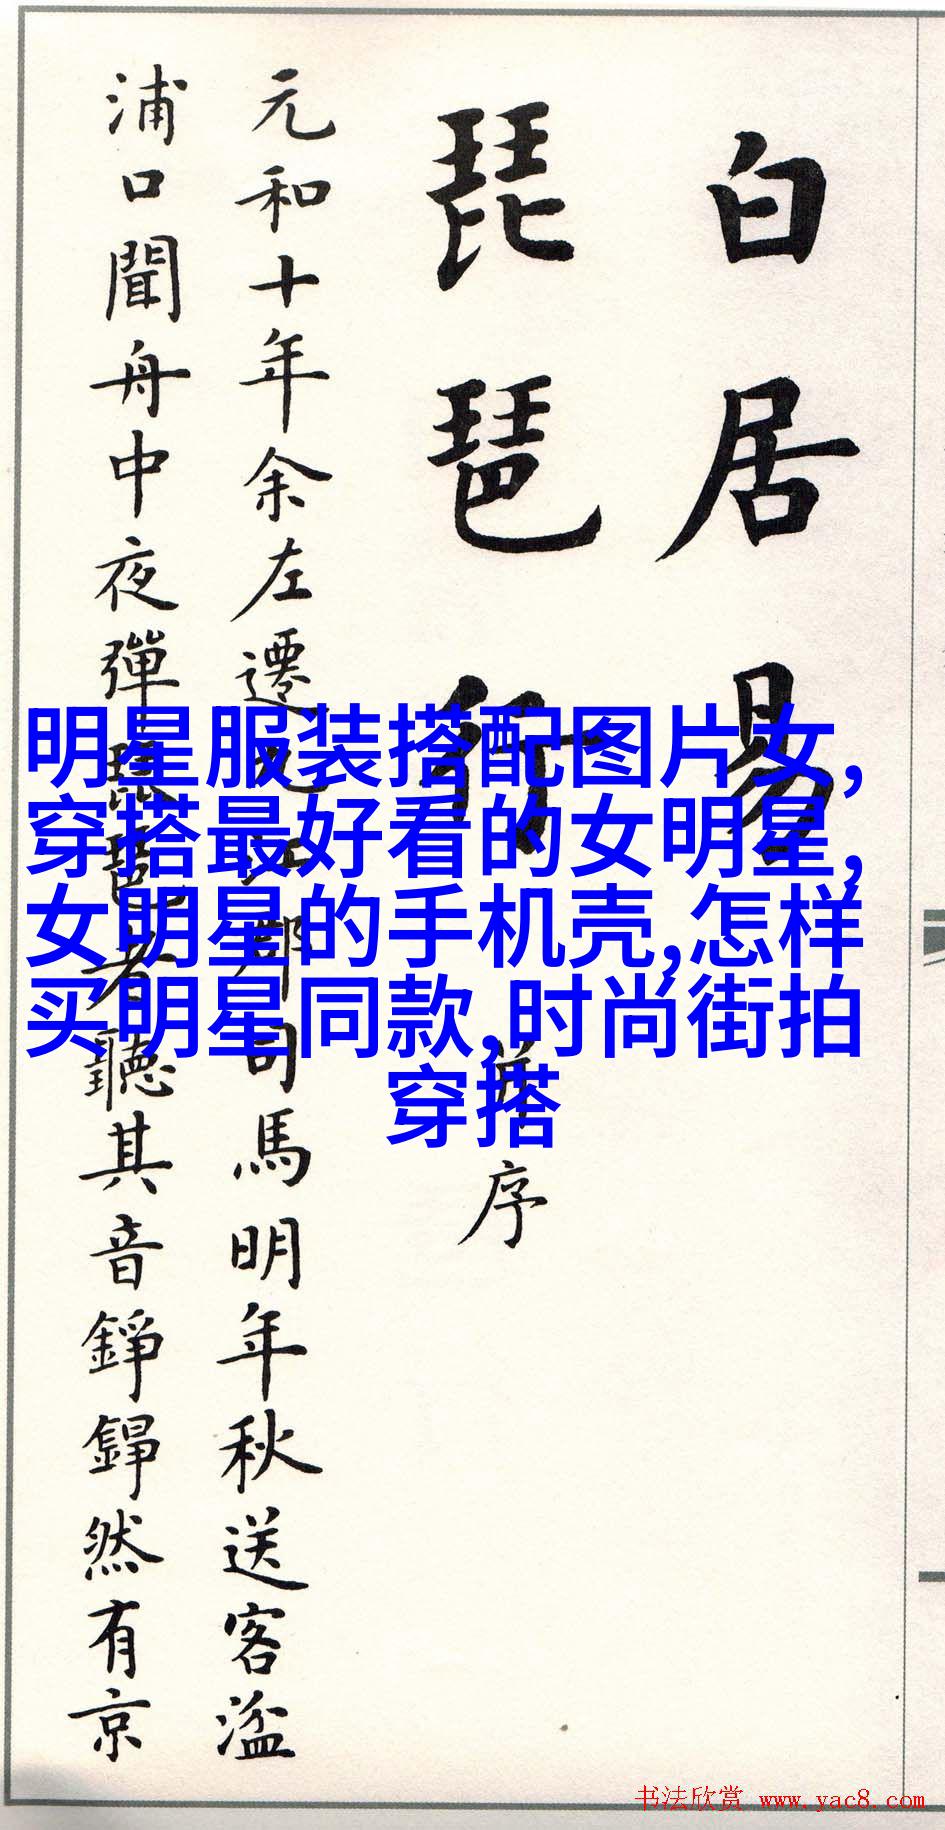 白居易
琵琶行
并序
元和十年余左遷九江郡司馬明年秋送客湓
浦口聞舟中夜彈琵琶者聽其音錚錚然有京
明星服装搭配图片女,
穿搭最好看的女明星,
女明星的手机壳,怎样
买明星同款,时尚街拍
穿搭
书法欣赏 www.yac8.com